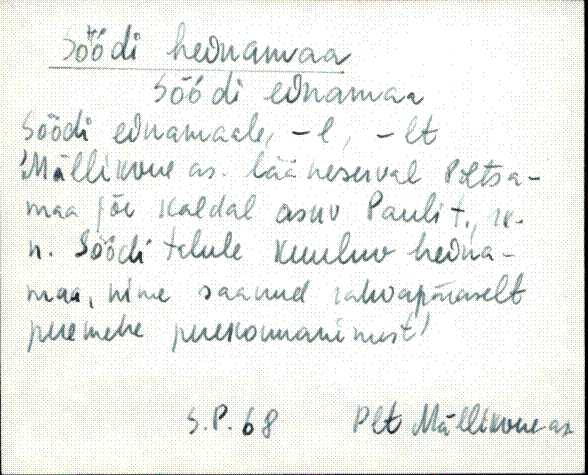 Söödi heinamaa
Söödi einamaa
Söödi einamaale, -l, -lt
'Mällikvere as. lääneserval Põltsa-
maa jõe kaldal asuv Pauli t., rv-
n. Söödi talule kuuluv heina-
maa, nime saanud rahvapäraselt
peremehe perekonnanimest'
S.P. 68 Plt Mällikvere as